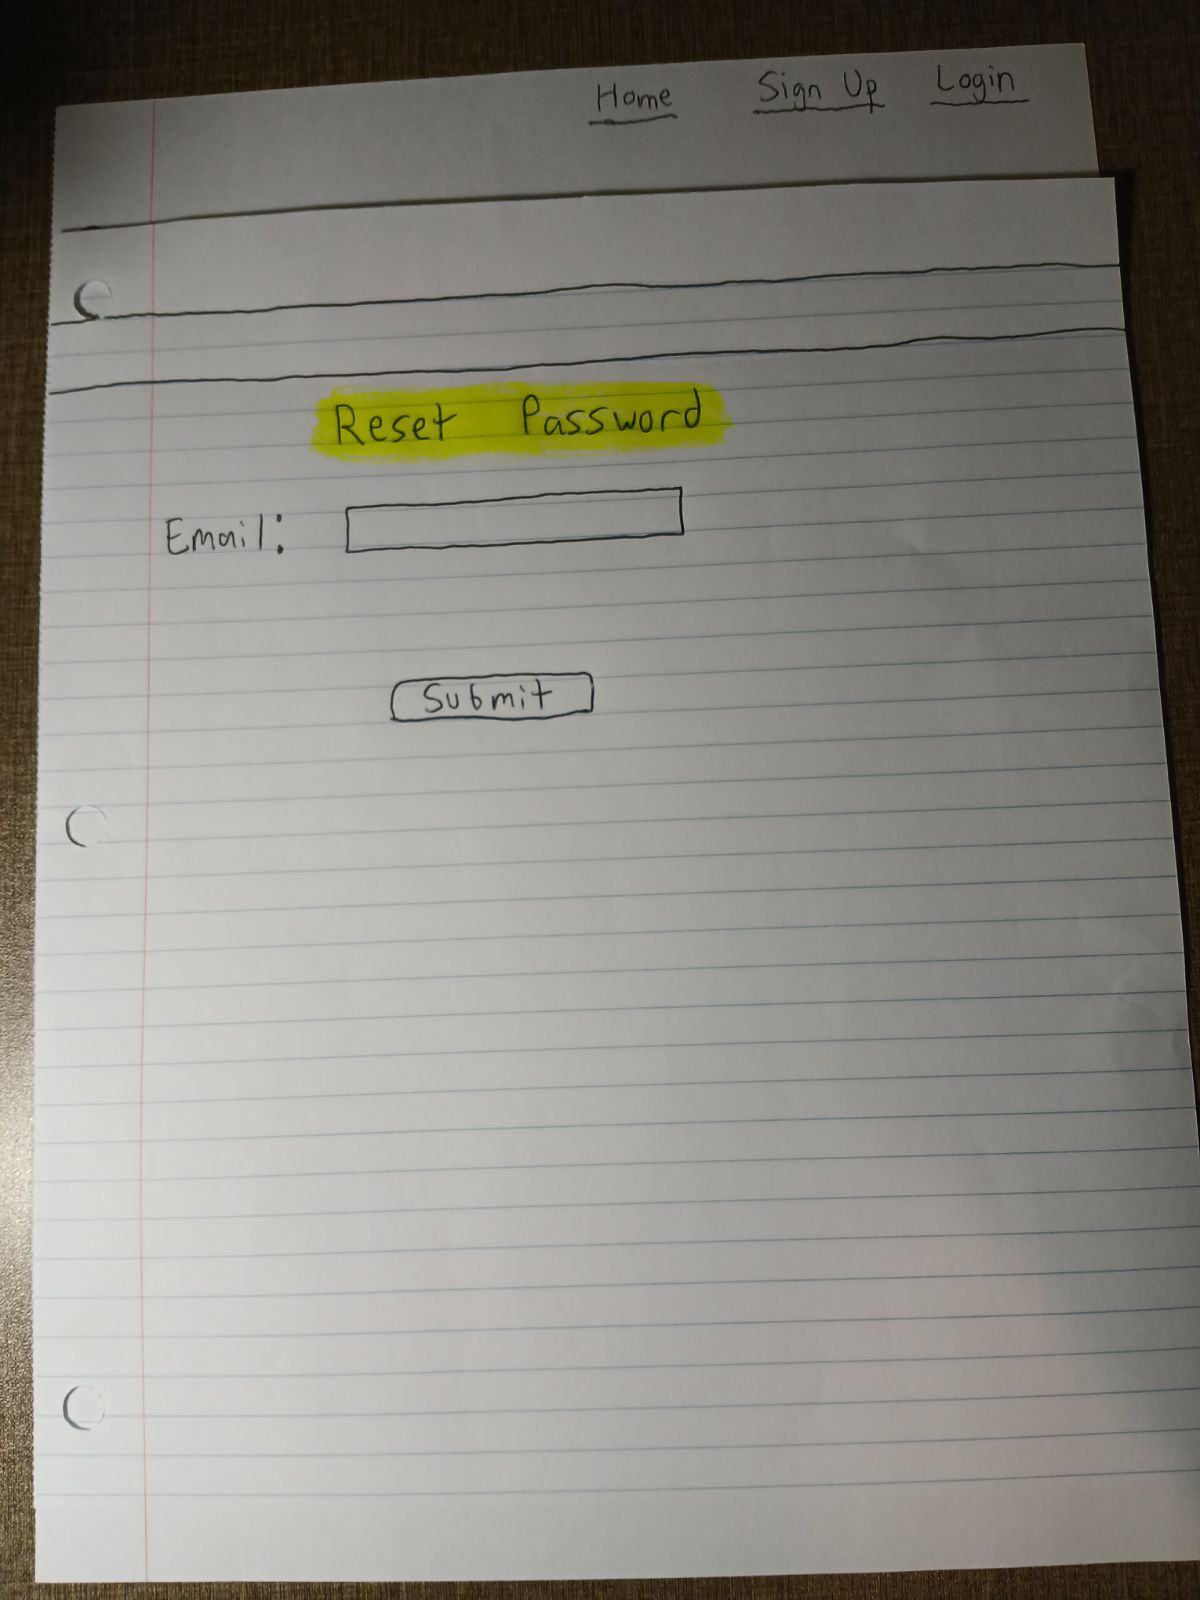 Home Sign Up Login
Reset Password
Email:
Submit